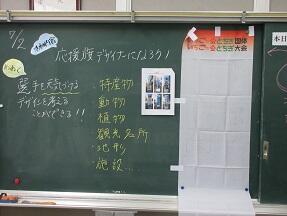 7/2
応援旗デザイナーになろう！
選手を元気づける
デザインを考える
ことができる!!
・特産物
・動物
・植物
・観光名所
・地形
・施設…
いちご一会とちぎ国体
いちご一会とちぎ大会
本日